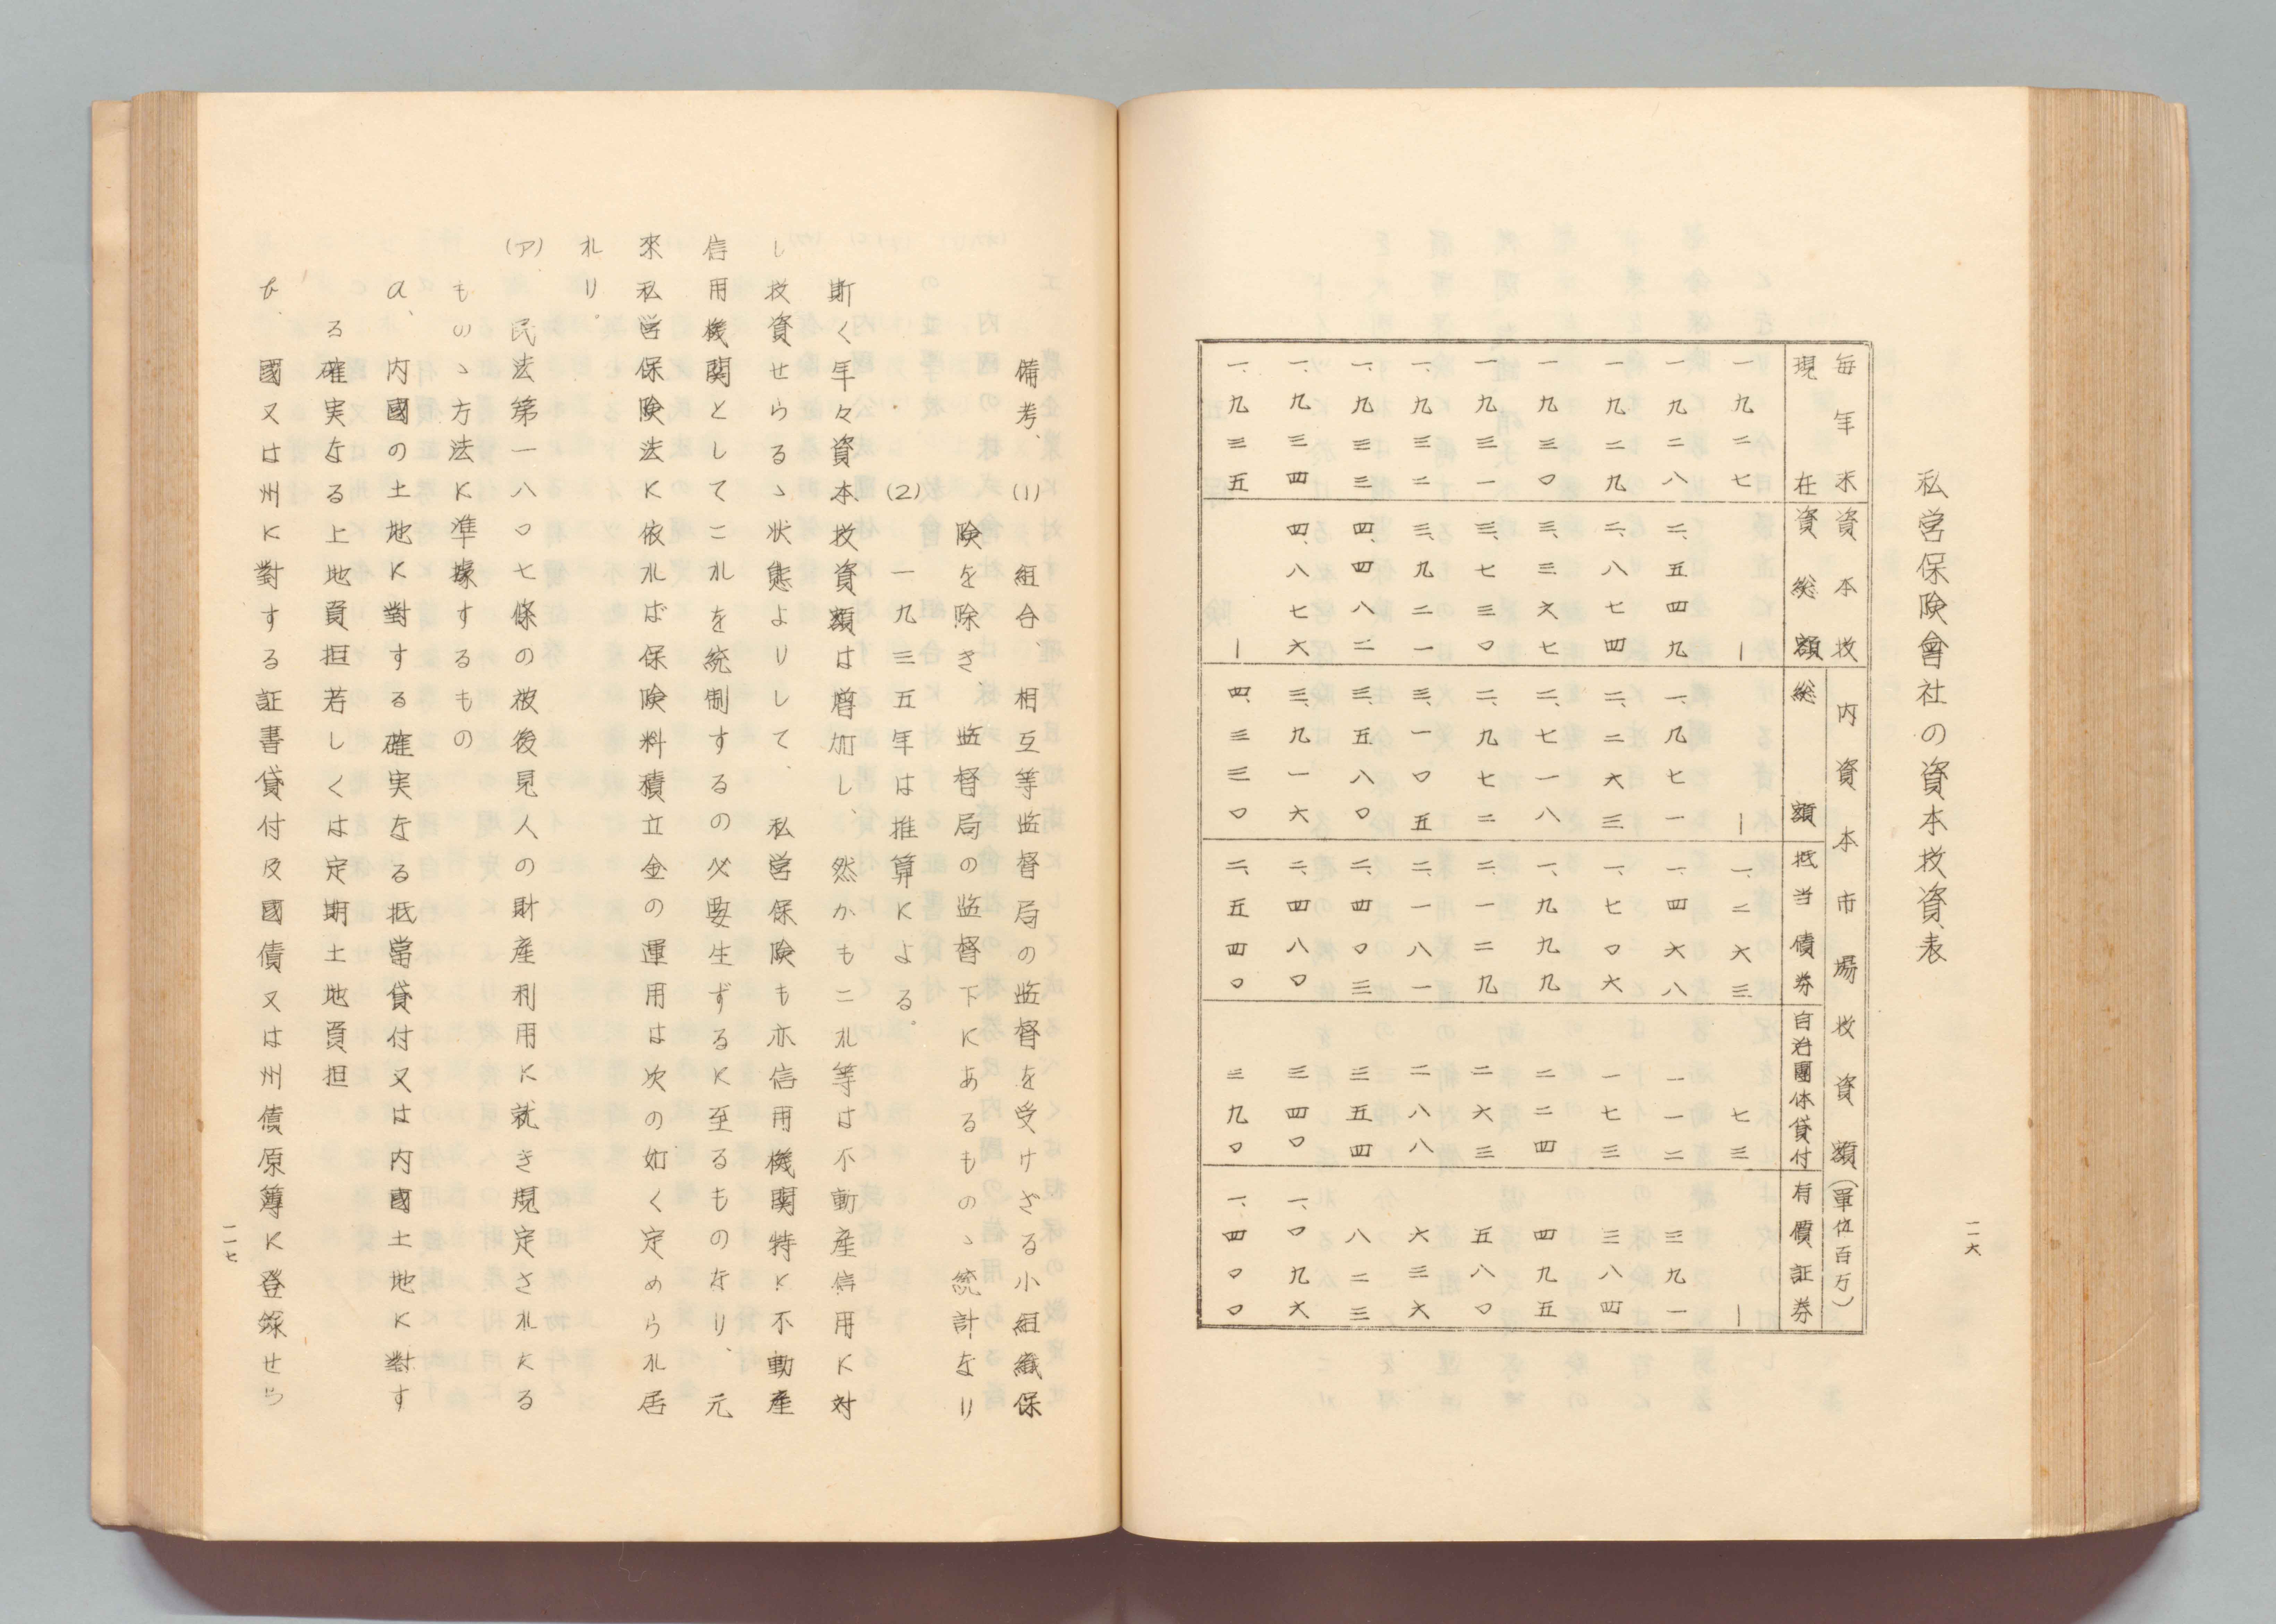 私営保険會社の資本投資表
毎年末 資本投 内資本市場投資額(單位百万)
現在 資総額 総額 抵当債券 自治團体貸付 有價証券
一九二七 ― ― 一、二六三 七三 ―
一九二八 二、五四九 一、九七一 一、四六八 一一二 三九一
一九二九 二、八七四 二、二六三 一、七〇六 一七三 三八四
一九三〇 三、三六七 二、七一八 一、九九九 二二四 四九五
一九三一 三、七三〇 二、九七二 二、一二九 二六三 五八〇
一、九三二 三、九二一 三、一〇五 二、一八一 二八八 六三六
一、九三三 四、四八二 三、五八〇 二、四〇三 三五四 八二三
一、九三四 四、八七六 三、九一六 二、四八〇 三四〇 一、〇九六
一、九三五 ― 四、三三〇 二、五四〇 三九〇 一、四〇〇
一一六
備考、(1) 組合、相互等監督局の監督を受けざる小組織保
険を除き、監督局の監督下にあるものゝ統計なり
(2) 一九三五年は推算による。
斯く年々資本投資額は増加し、然かもこれ等は不動産信用に対
し投資せらるゝ状態よりして、私営保険も亦信用機関特に不動産
信用機関としてこれを統制するの必要生ずるに至るものなり、元
來私営保険法に依れば保険料積立金の運用は次の如く定められ居
れり。
(ア) 民法第一八〇七條の被後見人の財産利用に就き規定されたる
ものゝ方法に準據するもの
a、内國の土地に對する確実なる抵當貸付又は内國土地に對す
る確実なる土地負担若しくは定期土地負担
b. 國又は州に對する証書貸付及國債又は州債原簿に登録せら
一一七